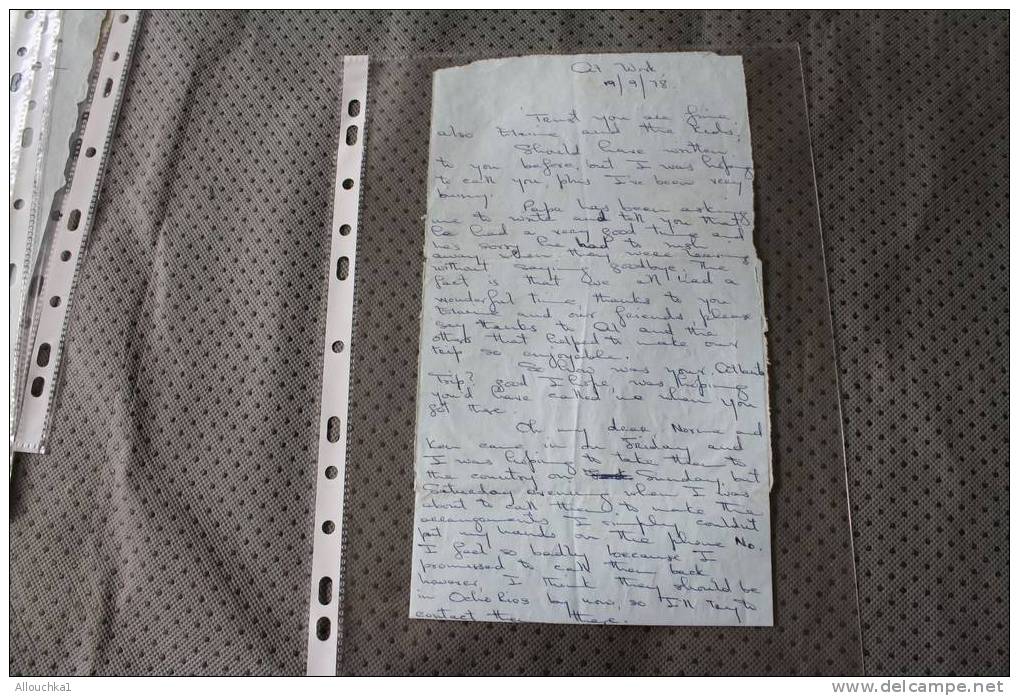 At Work
19/9/78
Trust you are fine
also Elaine and the kids.
Should have written
to you before, but I was hoping
to call you, plus I've been very
busy.
Papa has been asking
me to write and tell you that
he had a very good time and
he's sorry he had to rush
away when they were leaving
without saying goodbye. The
fact is that we all had a
wonderful time, thanks to you
Elaine and our friends please
say thanks to Al and the
others that helped to make our
trip so enjoyable.
So how was your Atlanta
Trip? good I hope, was hoping
you'd have called me when you
got there.
Oh my dear Norma and
Ken came in on Friday and
I was hoping to take them to
the country on Sunday, but
Saturday evening when I was
about to call them to make the
arrangements I simply couldn't
put my hands on the phone No.
I feel so badly because I
promissed to call them back
however, I think they should be
in Ocho Rios by now, so I'll try to
contact them there.
Allouchka1
delcampe.net